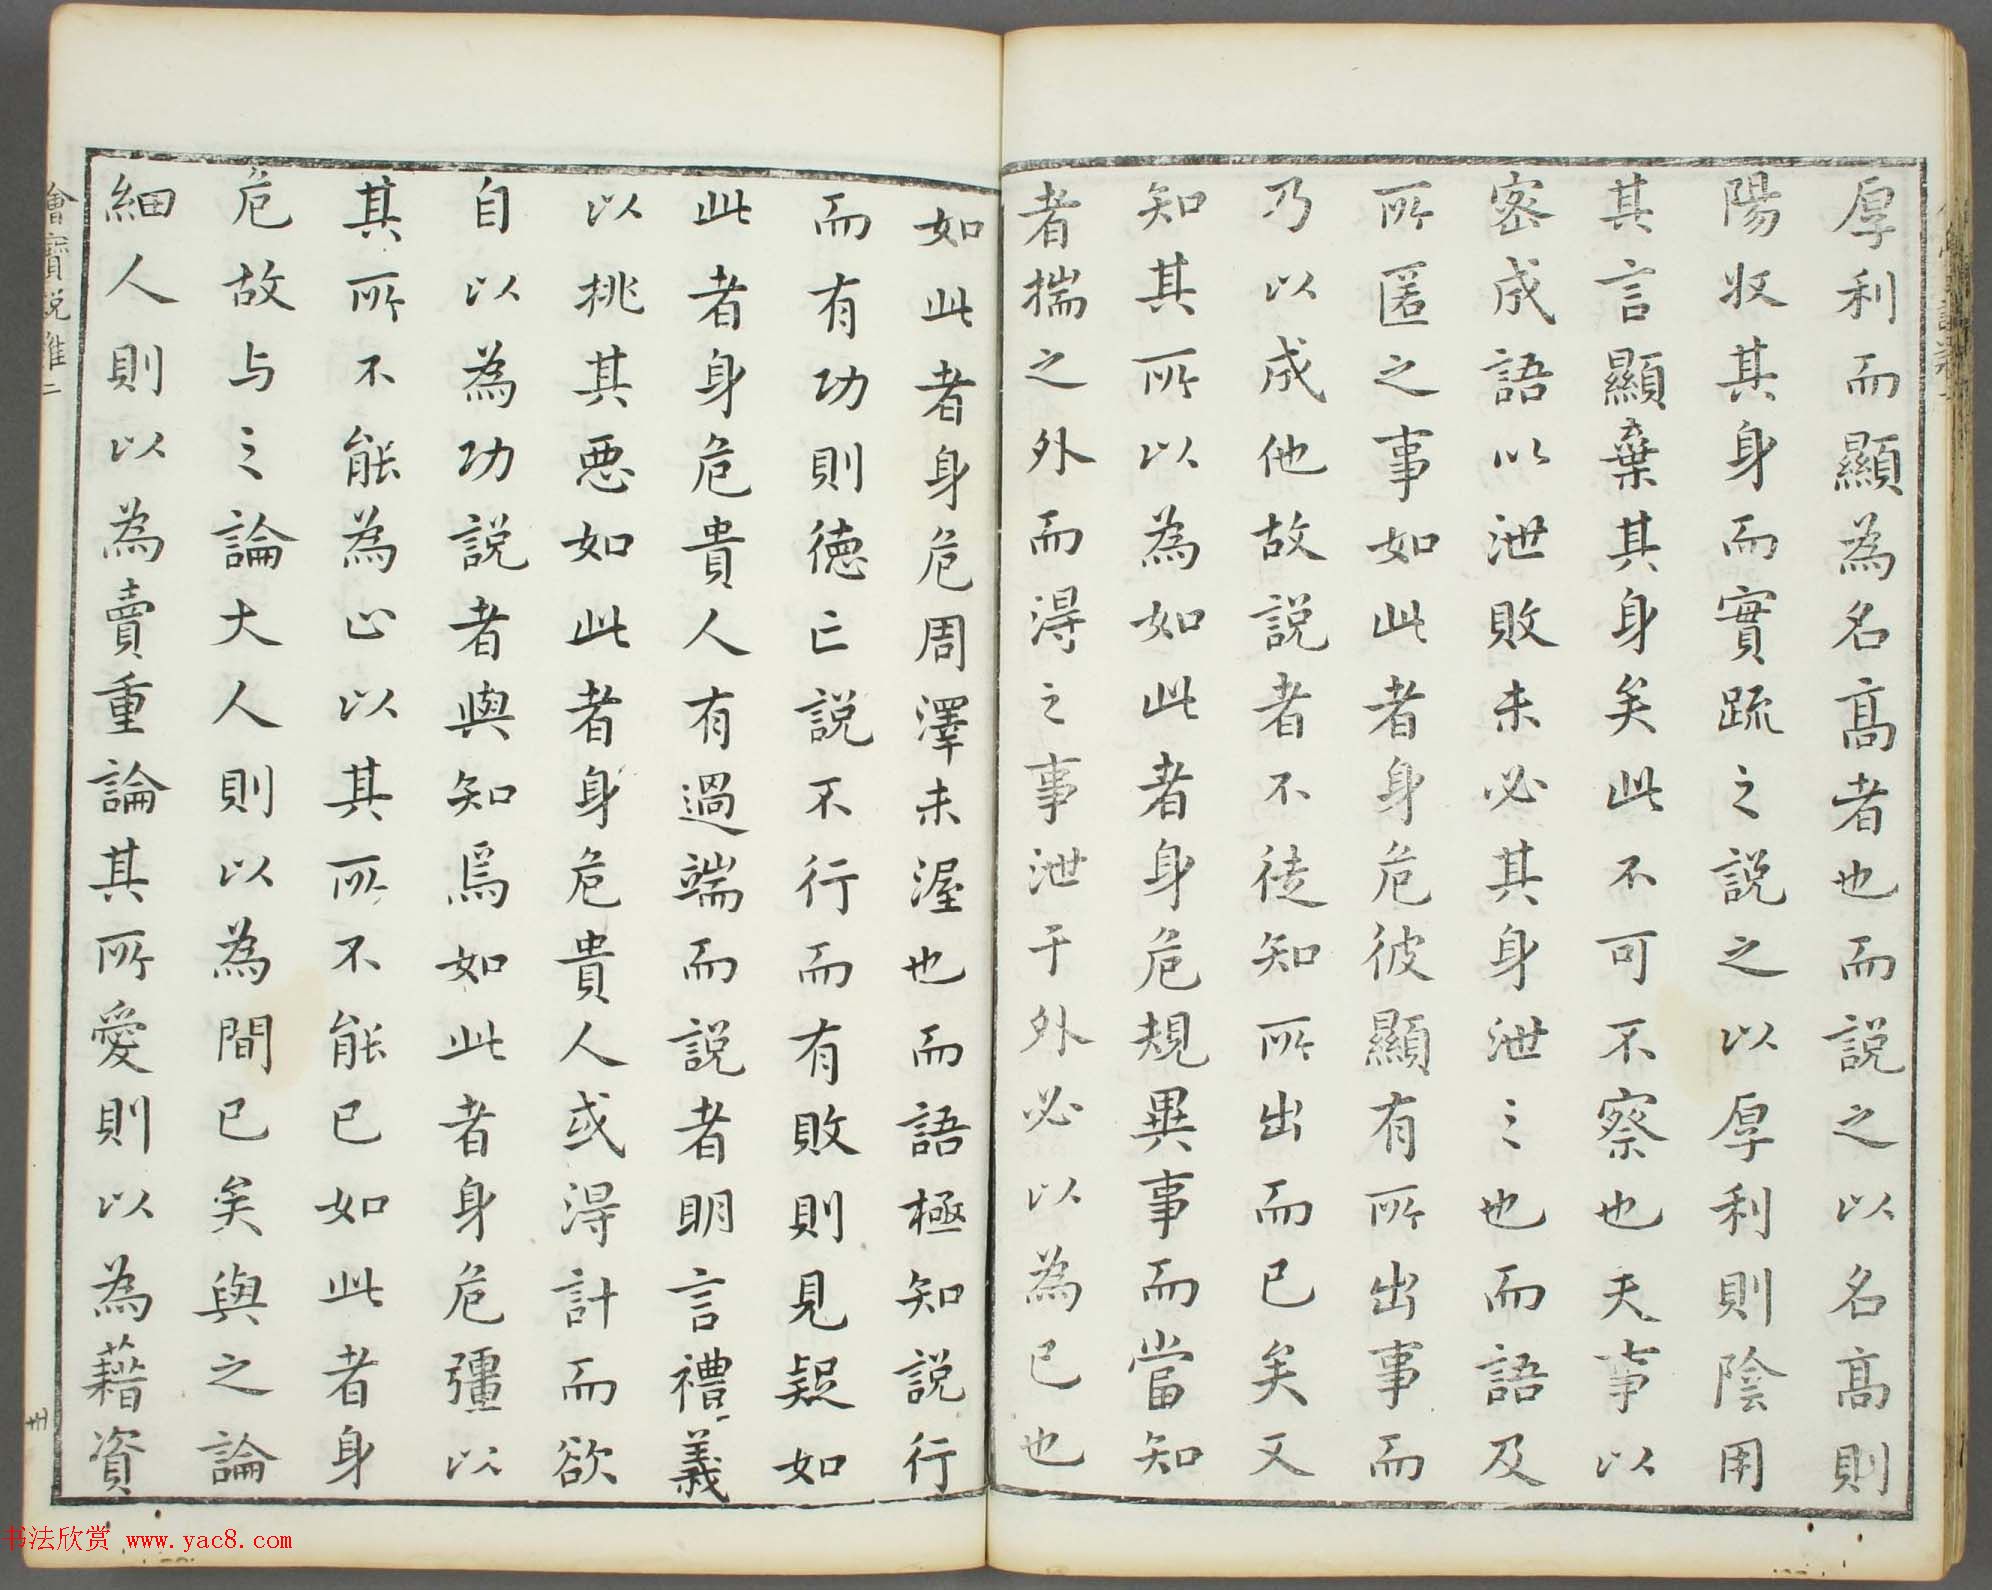 厚利而顯為名高者也而説之以名高則
陽收其身而實疏之説之以厚利則陰用
其言顯棄其身矣此不可不察也夫事以
密成語以泄敗未必其身泄之也而語及
所匿之事如此者身危彼顯有所出事而
乃以成他故説者不徒知所出而已矣又
知其所以為如此者身危規異事而當知
者揣之外而得之事泄于外必以為已也
如此者身危周澤未渥也而語極知説行
而有功則德亡説不行而有敗則見疑如
此者身危貴人有過端而説者明言禮義
以挑其惡如此者身危貴人或得計而欲
自以為功説者與知焉如此者身危彊以
其所不能為止以其所不能已如此者身
危故与之論大人則以為間已矣與之論
細人則以為賣重論其所愛則以為藉資
會寶説難二
書法欣赏 www.yac8.com